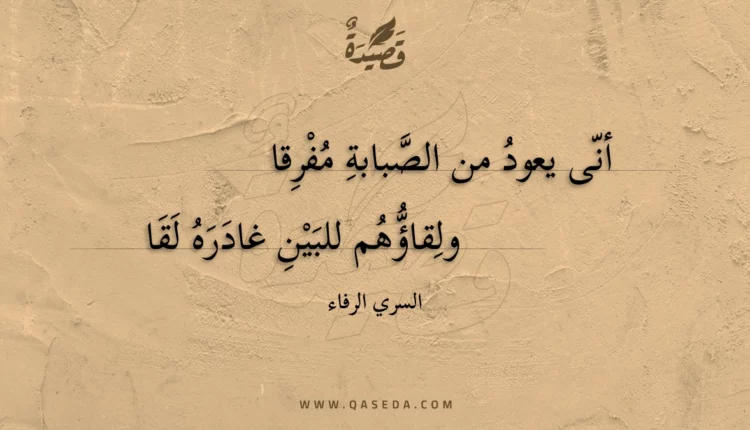 قَصِيْدَةٌ
أنّى يعودُ من الصَّبابةِ مُفْرِقا
ولِقاؤُّهُم للبَيْنِ غادَرَهُ لَقَا
السري الرفاء
WWW.QASEDA.COM